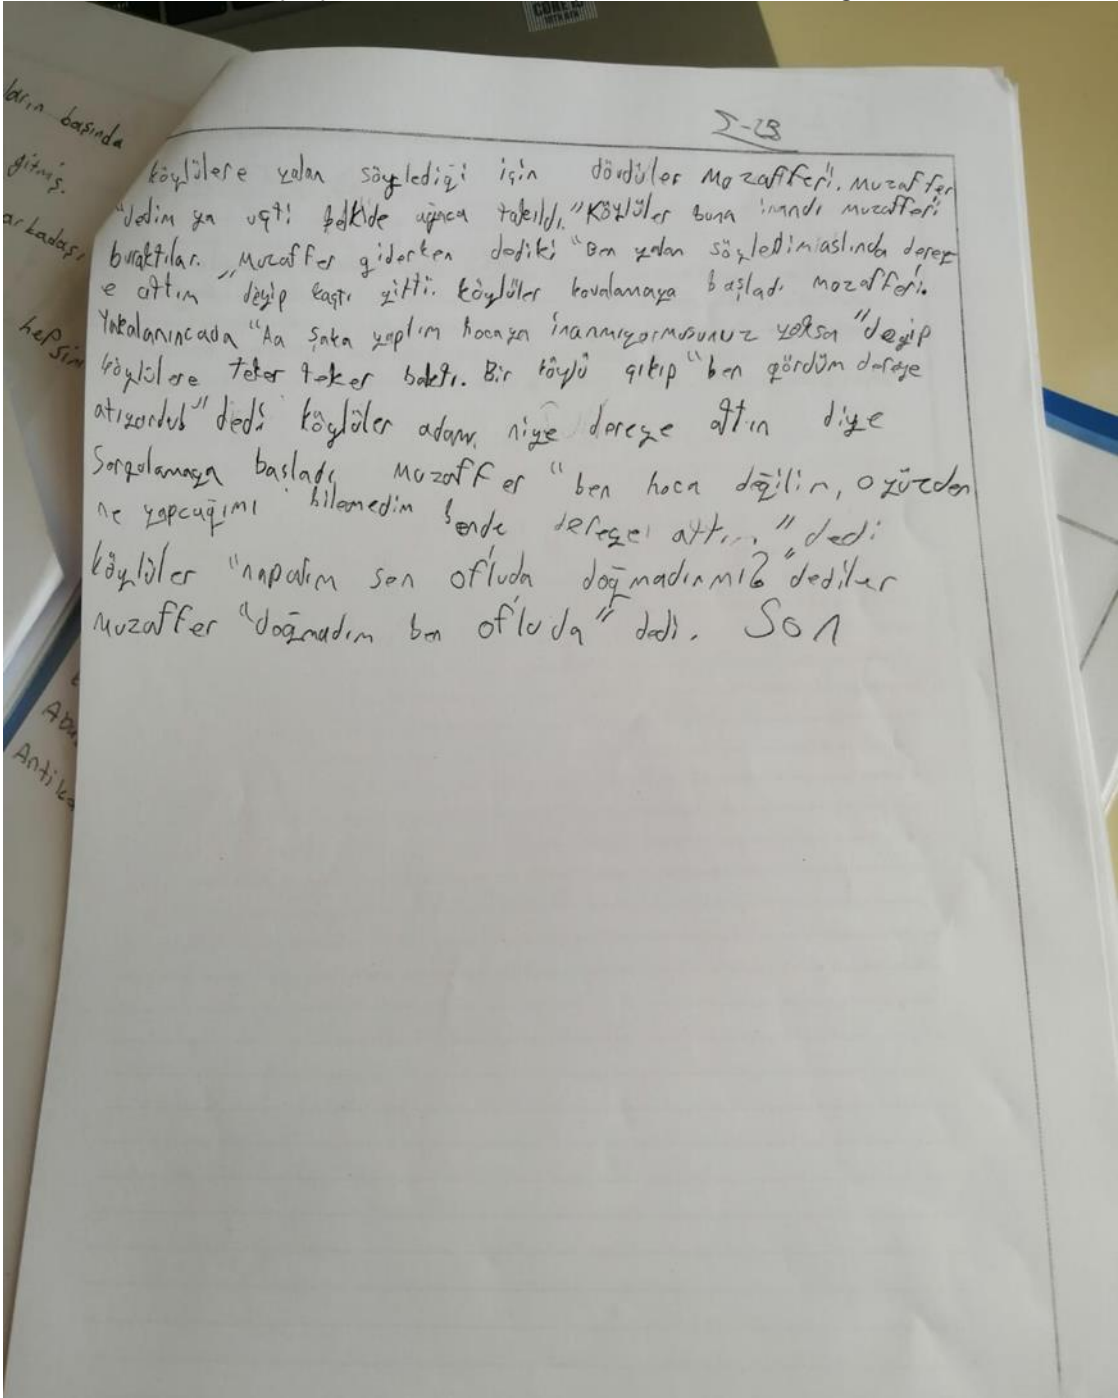 CORE i5
10TH GEN
ların başında
gitmiş.
arkadaşı
hepsini
Abu
Antika
Σ-2B
köylülere yalan söylediği için dövdüler Mozafferi. Muzaffer
"dedim ya uçti belkide ağaca takıldı." Köylüler buna inandı muzafferi
buraktılar. Muzaffer giderken dediki "Ben yalan söyledimiaslında derey
e attım" deyip kaçtı gitti. köylüler kovalamaya başladı mozafferi.
Yakalanıncada "Aa şaka yaptım hocaya inanmıyormusunuz yoksa" deyip
köylülere teker teker baktı. Bir köylü çıkıp "ben gördüm dereye
atıyordu" dedi köylüler adamı niye dereye attın diye
Sorgolamaya başladı, Muzaffer "ben hoca değilim, o yüzden
ne yapcuğımı bilemedim bende dereye attım" dedi
köylüler "napalım sen ofluda doğmadınmı?" dediler
muzaffer "doğmadım ben ofluda" dedi. Son